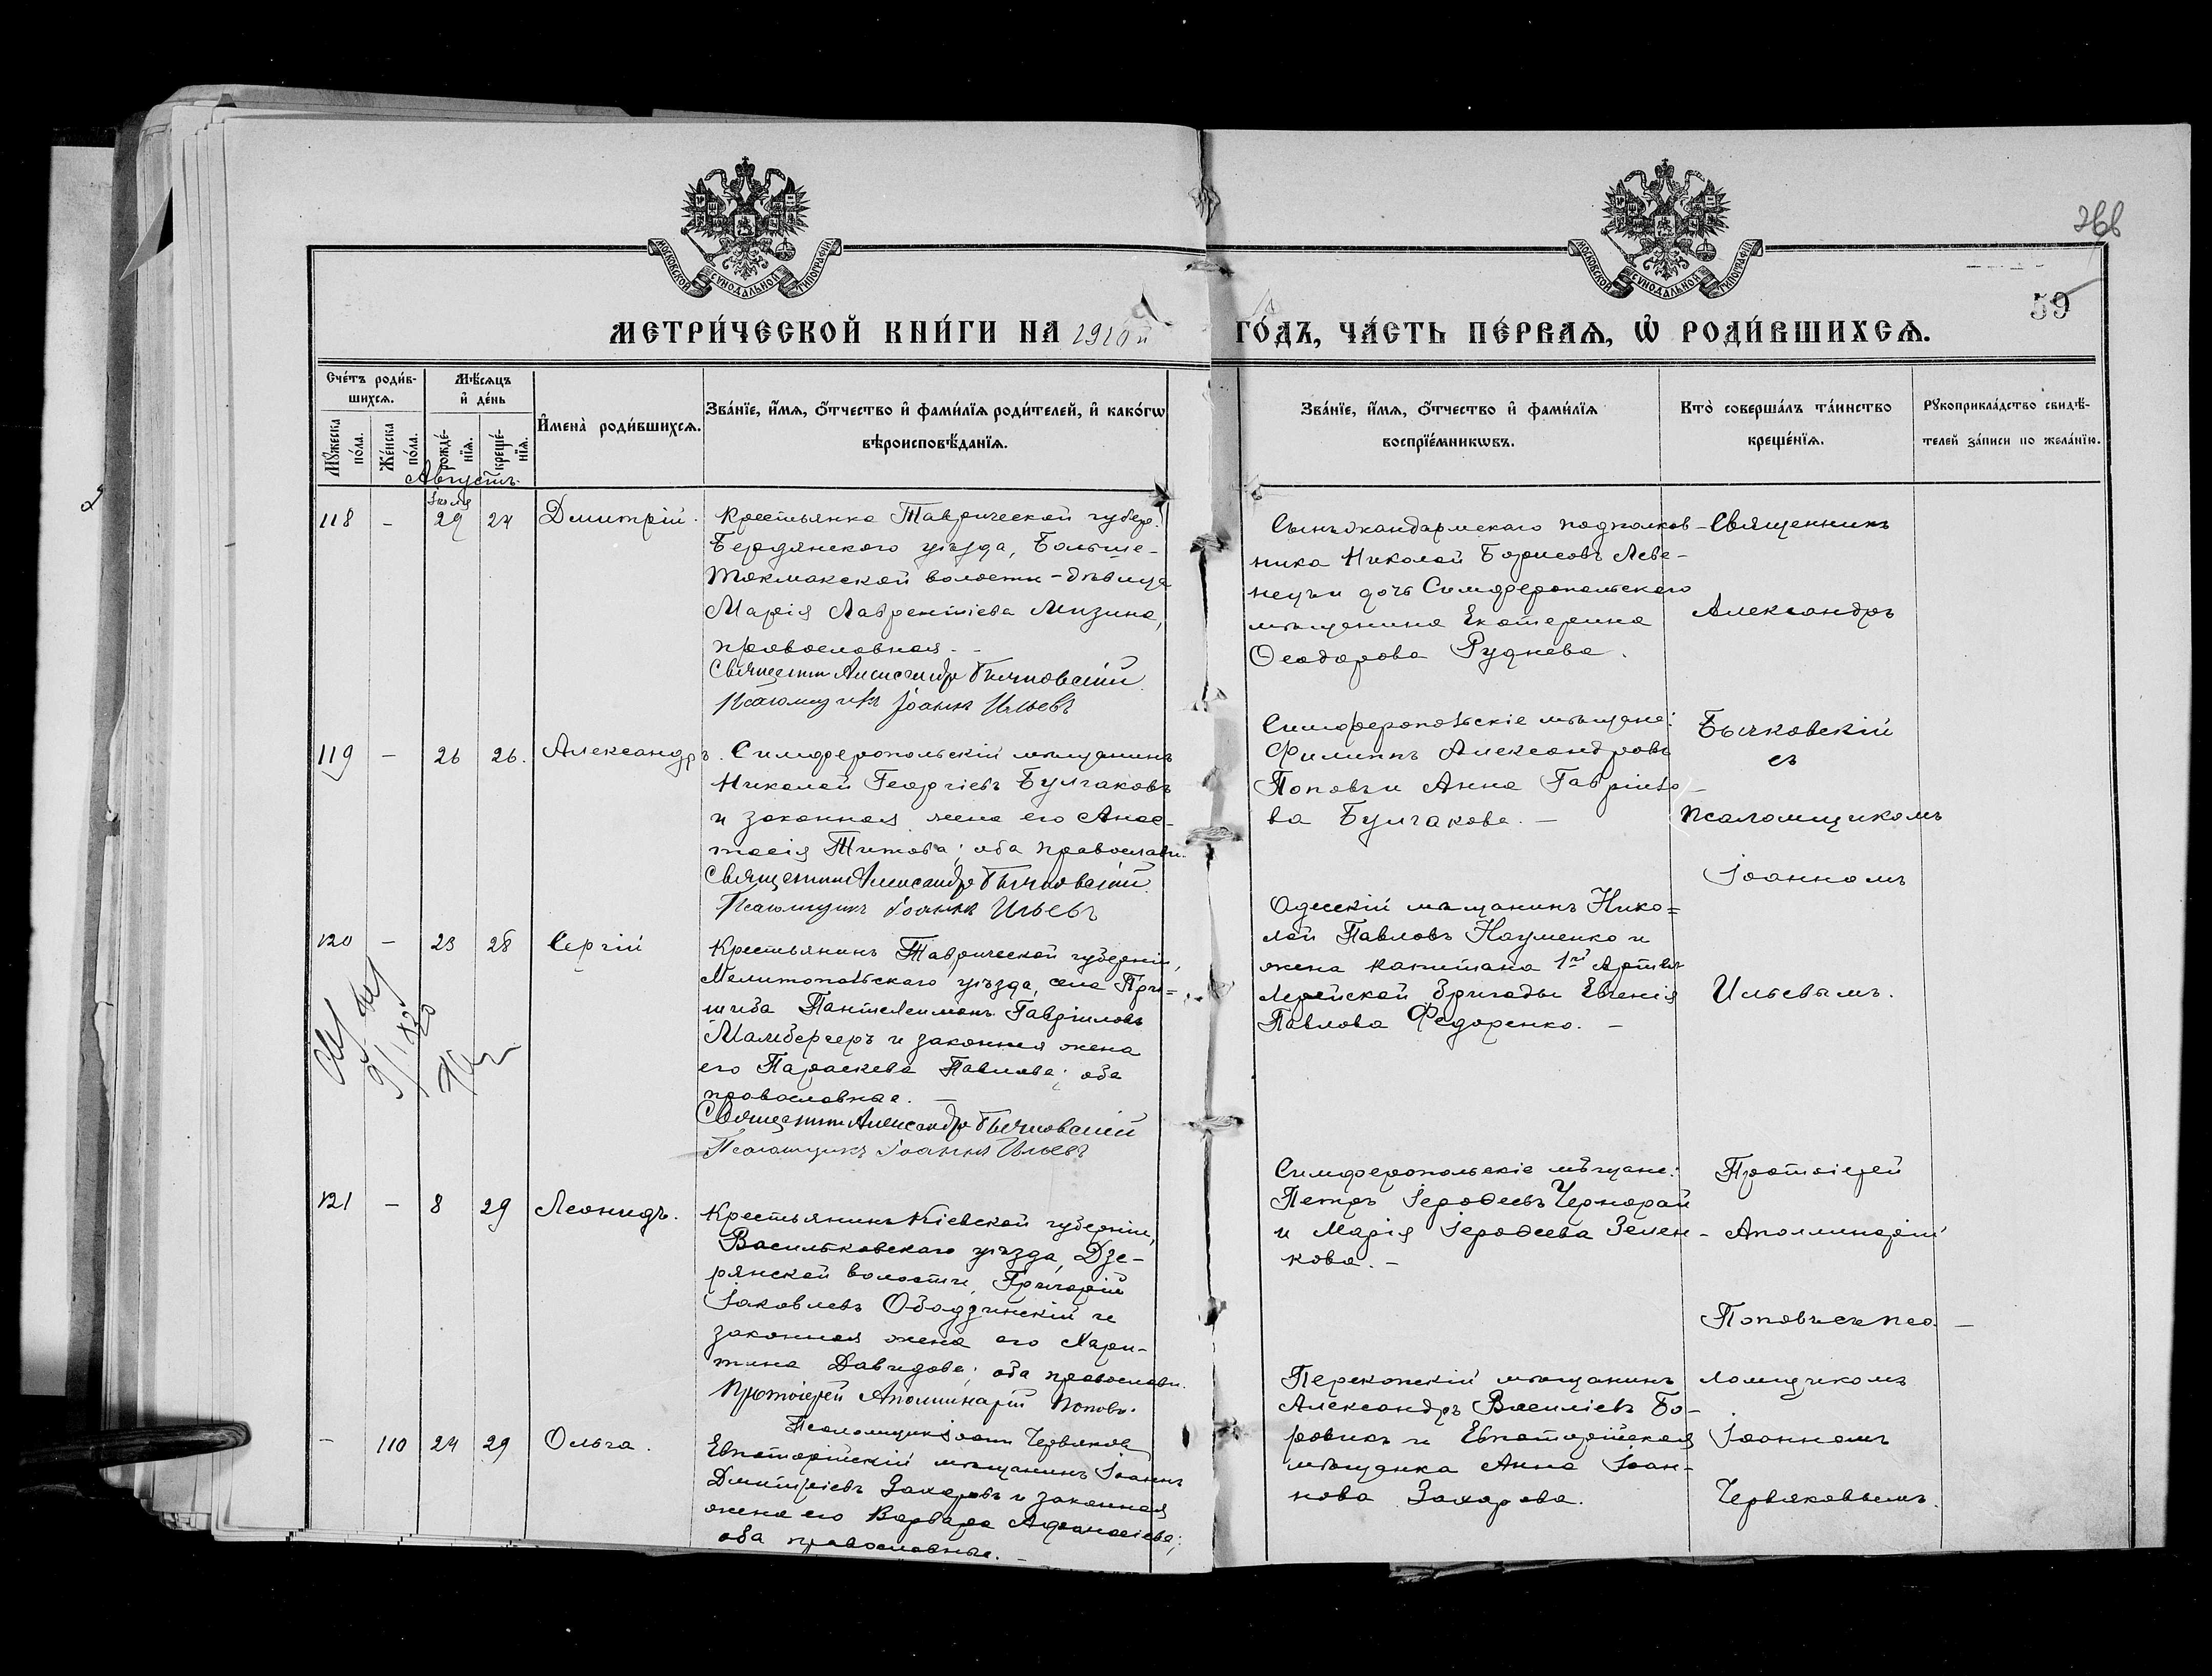 МОСКОВСКОЙ СѴНОДАЛЬНОЙ ТИПОГРАФІИ
МОСКОВСКОЙ СѴНОДАЛЬНОЙ ТИПОГРАФІИ
59
МЕТРИ́ЧЕСКОЙ КНИ́ГИ НА 1910й ГО́ДЪ, ЧА́СТЬ ПЕ́РВАѦ, Ѡ҆ РОДИ́ВШИХСѦ.
Счéтъ роди́в-
шихсѧ.
Мꙋ́жеска по́ла.
Же́нска по́ла.
Мѣ́сѧцъ
и҆ де́нь
рожде́-
нїѧ.
креще́-
нїѧ.
И҆мена̀ роди́вшихсѧ.
Зва́нїе, и҆́мѧ, ѻ҆́тчество и҆ фами́лїѧ роди́телей, и҆ како́гѡ
вѣроисповѣ́данїѧ.
Зва́нїе, и҆́мѧ, ѻ҆́тчество и҆ фами́лїѧ
воспрїе́мникѡвъ.
Кто̀ соверша́лъ та́инство
креще́нїѧ.
Рꙋкоприкла́дство свидѣ́-
телей за́писи по жела́нїю.
Августъ.
118 - Іюля 29 24 Дмитрій.
Крестьянка Таврической губер.
Бердянского уѣзда, Больше-
Токмакской волости - дѣвица
Марія Лаврентіева Мизина,
православная. -
Священник Александр Бычковскій
Псаломщикъ Іоаннъ Ильевъ
Сынъ жандармскаго подполков-
ника Николай Борисовъ Леве-
нецъ и дочь Симферопольскаго
мѣщанина Екатерина
Ѳеодорова Руднева.
Священникъ
Александръ
119 - 26 26. Александръ.
Симферопольскій мѣщанинъ
Николай Георгіевъ Булгаковъ
и законная жена его Анас-
тасія Титова; оба православн.
Священник Александр Бычковскій.
Псаломщикъ Іоаннъ Ильевъ
Симферопольскіе мѣщане:
Филиппъ Александровъ
Поповъ и Анна Гавріило-
ва Булгакова. -
Бычковскій
съ
псаломщикомъ
Іоанномъ
120 - 23 28 Сергій
Крестьянинъ Таврической губерніи,
Мелитопольскаго уѣзда, села При-
шиба Пантелеимонъ Гавріиловъ
Мамбергеръ и законная жена
его Параскева Павлова; оба
православные. -
Священник Александр Бычковскій
Псаломщикъ Іоаннъ Ильевъ
Одесскій мѣщанинъ Нико=
лай Павловъ Науменко и
жена капитана 1й Артил
лерейской бригады Евгенія
Павлова Федоренко. -
Ильевымъ.
121 - 8 29 Леонидъ.
Крестьянинъ Кіевской губерніи,
Васильковскаго уѣзда, Дзе-
рянской волости, Григорій
Іаковлевъ Ободзинскій и
законная жена его Хари-
тина Давидова; оба православн.
Протоіерей Аполлинарій Поповъ.
Псаломщикъ Іоаннъ Червяковъ
Симферопольскіе мѣщане:
Петръ Іероѳеевъ Чернорай
и Марія Іероѳеева Зелен-
кова. -
Протоіерей
Аполлинарій
Поповъ съ пса-
- 110 24 29 Ольга.
Евпаторійскій мѣщанинъ Іоаннъ
Дмитріевъ Захаровъ и законная
жена его Варвара Афанасіева;
оба православные. -
Перекопскій мѣщанинъ
Александръ Василіевъ Бо-
ровикъ и Евпаторійская
мѣщанка Анна Іоан-
нова Захарова.
ломщикомъ
Іоанномъ
Червяковымъ.